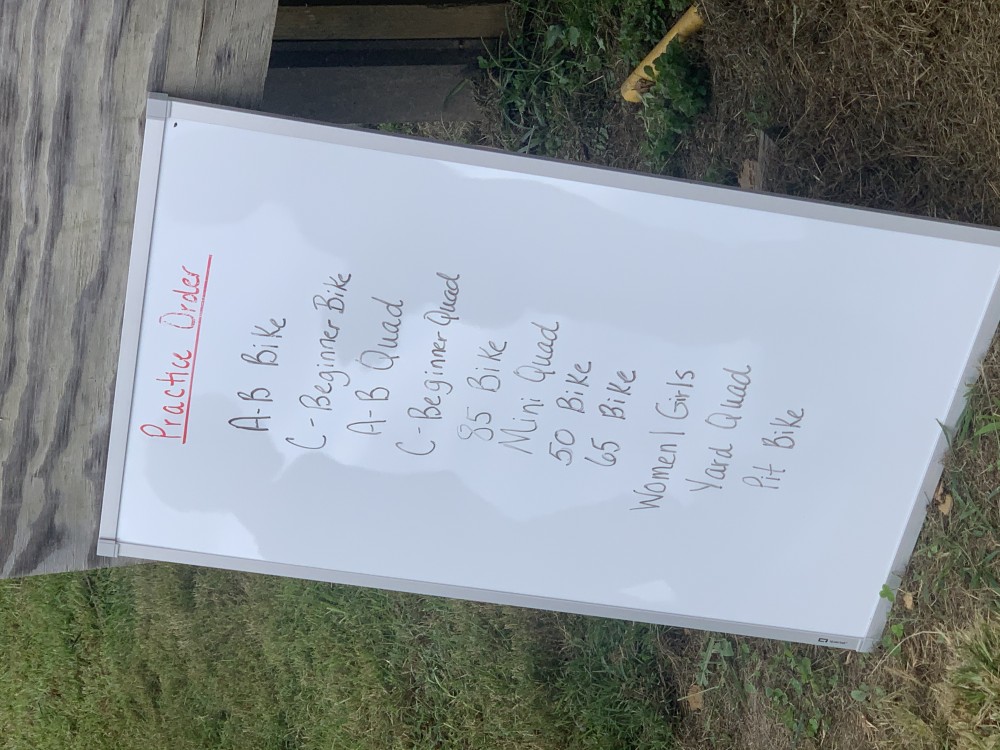 Practice Order
A-B Bike
C-Beginner Bike
A-B Quad
C-Beginner Quad
85 Bike
Mini Quad
50 Bike
65 Bike
Women/Girls
Yard Quad
Pit Bike